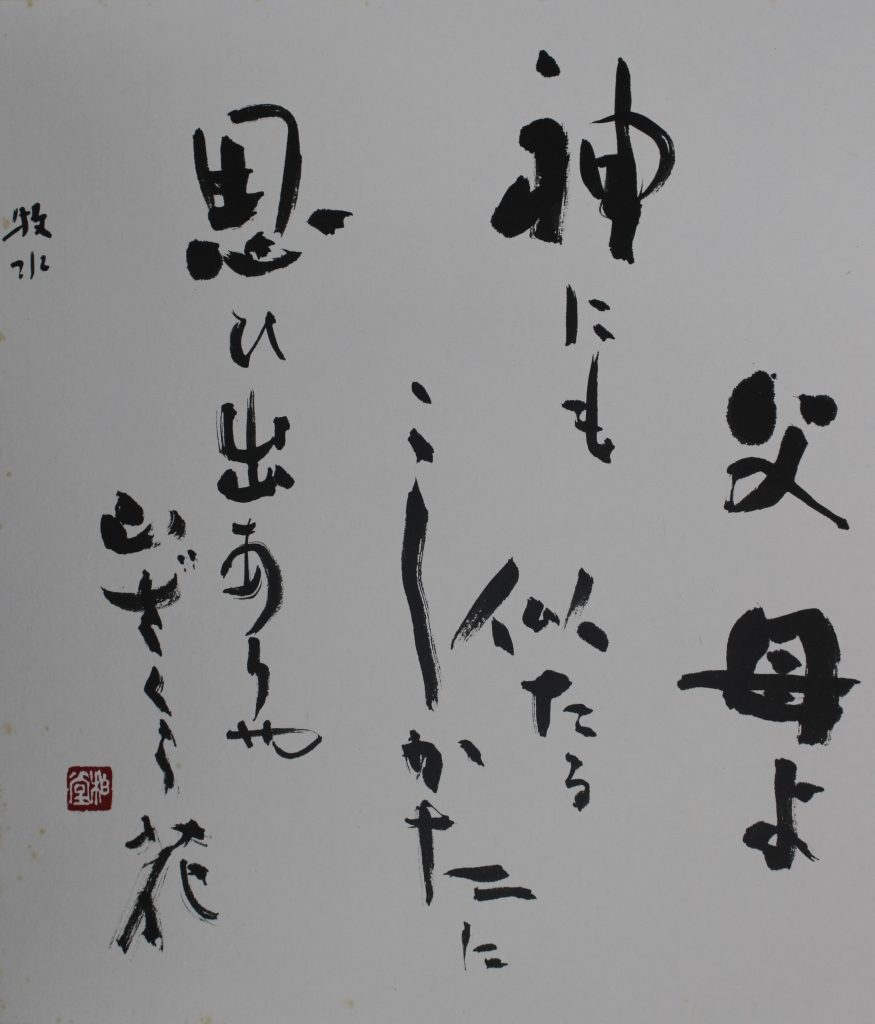 父母よ
神にも似たる
こしかたに
思ひ出ありや
山ざくら花
牧水
和堂